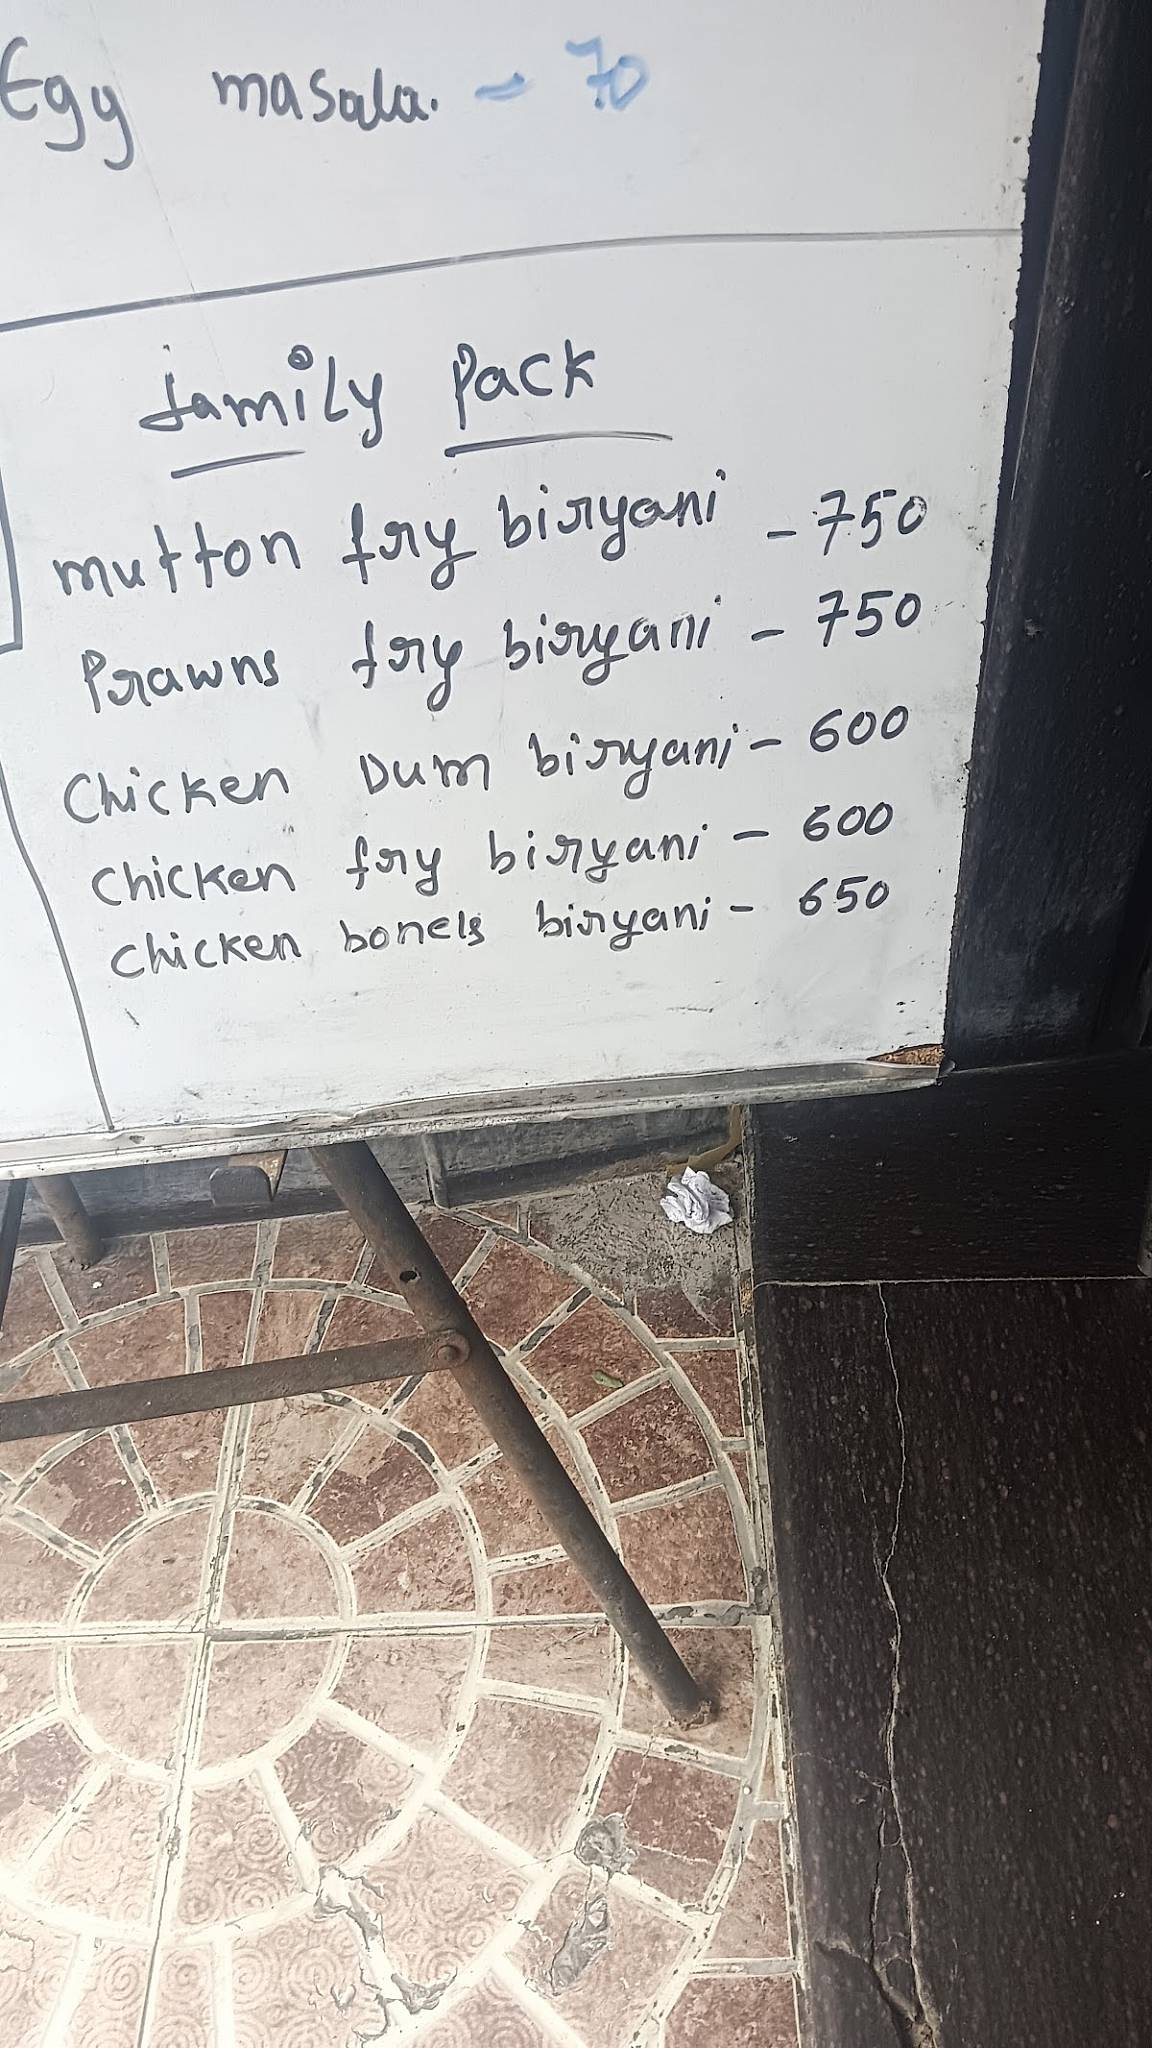 Egg masala. - 70
family Pack
mutton fry biryani - 750
Prawns fry biryani - 750
Chicken Dum biryani - 600
Chicken fry biryani - 600
Chicken bonels biryani - 650